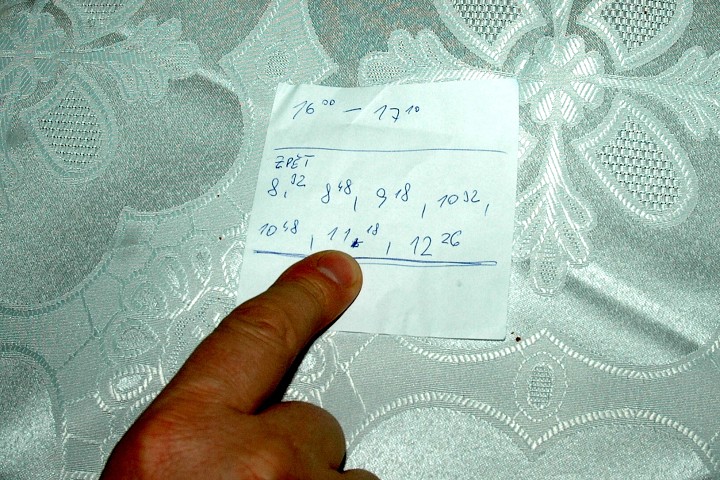 16⁰⁰ – 17¹⁰
ZPĚT
8,³² 8⁴⁸, 9¹⁸, 10³²,
10⁴⁸, 11¹⁸, 12²⁶